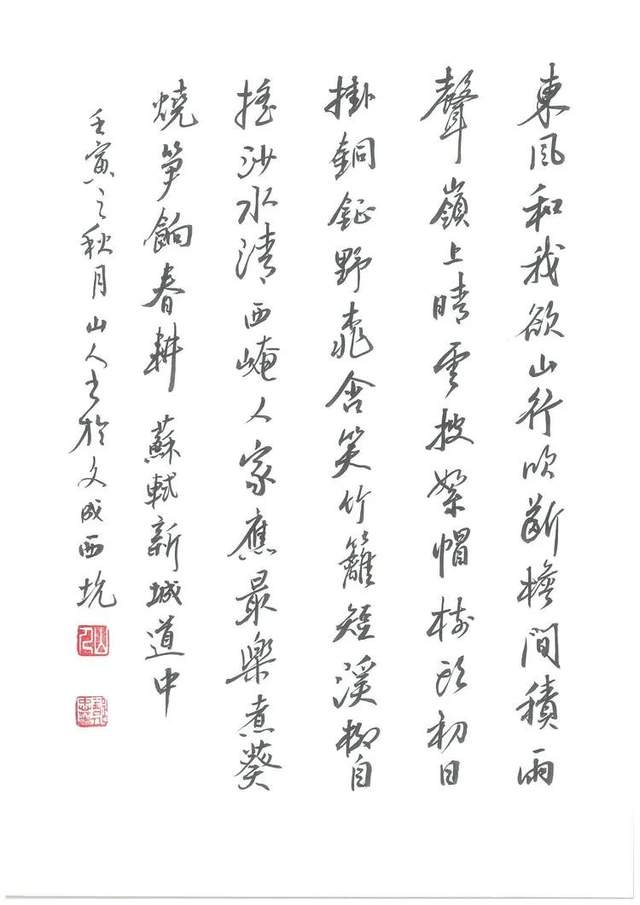 東風和我欲山行吹斷檐間積雨
聲嶺上晴雲披絮帽樹頭初日
掛銅鉦野桃含笑竹籬短溪柳自
搖沙水清西崦人家應最樂煮葵
燒笋餉春耕 蘇軾新城道中
壬寅之秋月山人书於文成西坑